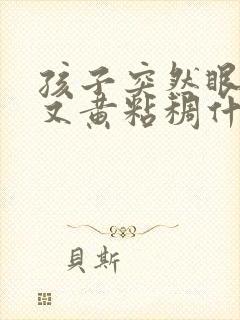 孩子突然眼
又黄粘稠什
貝斯